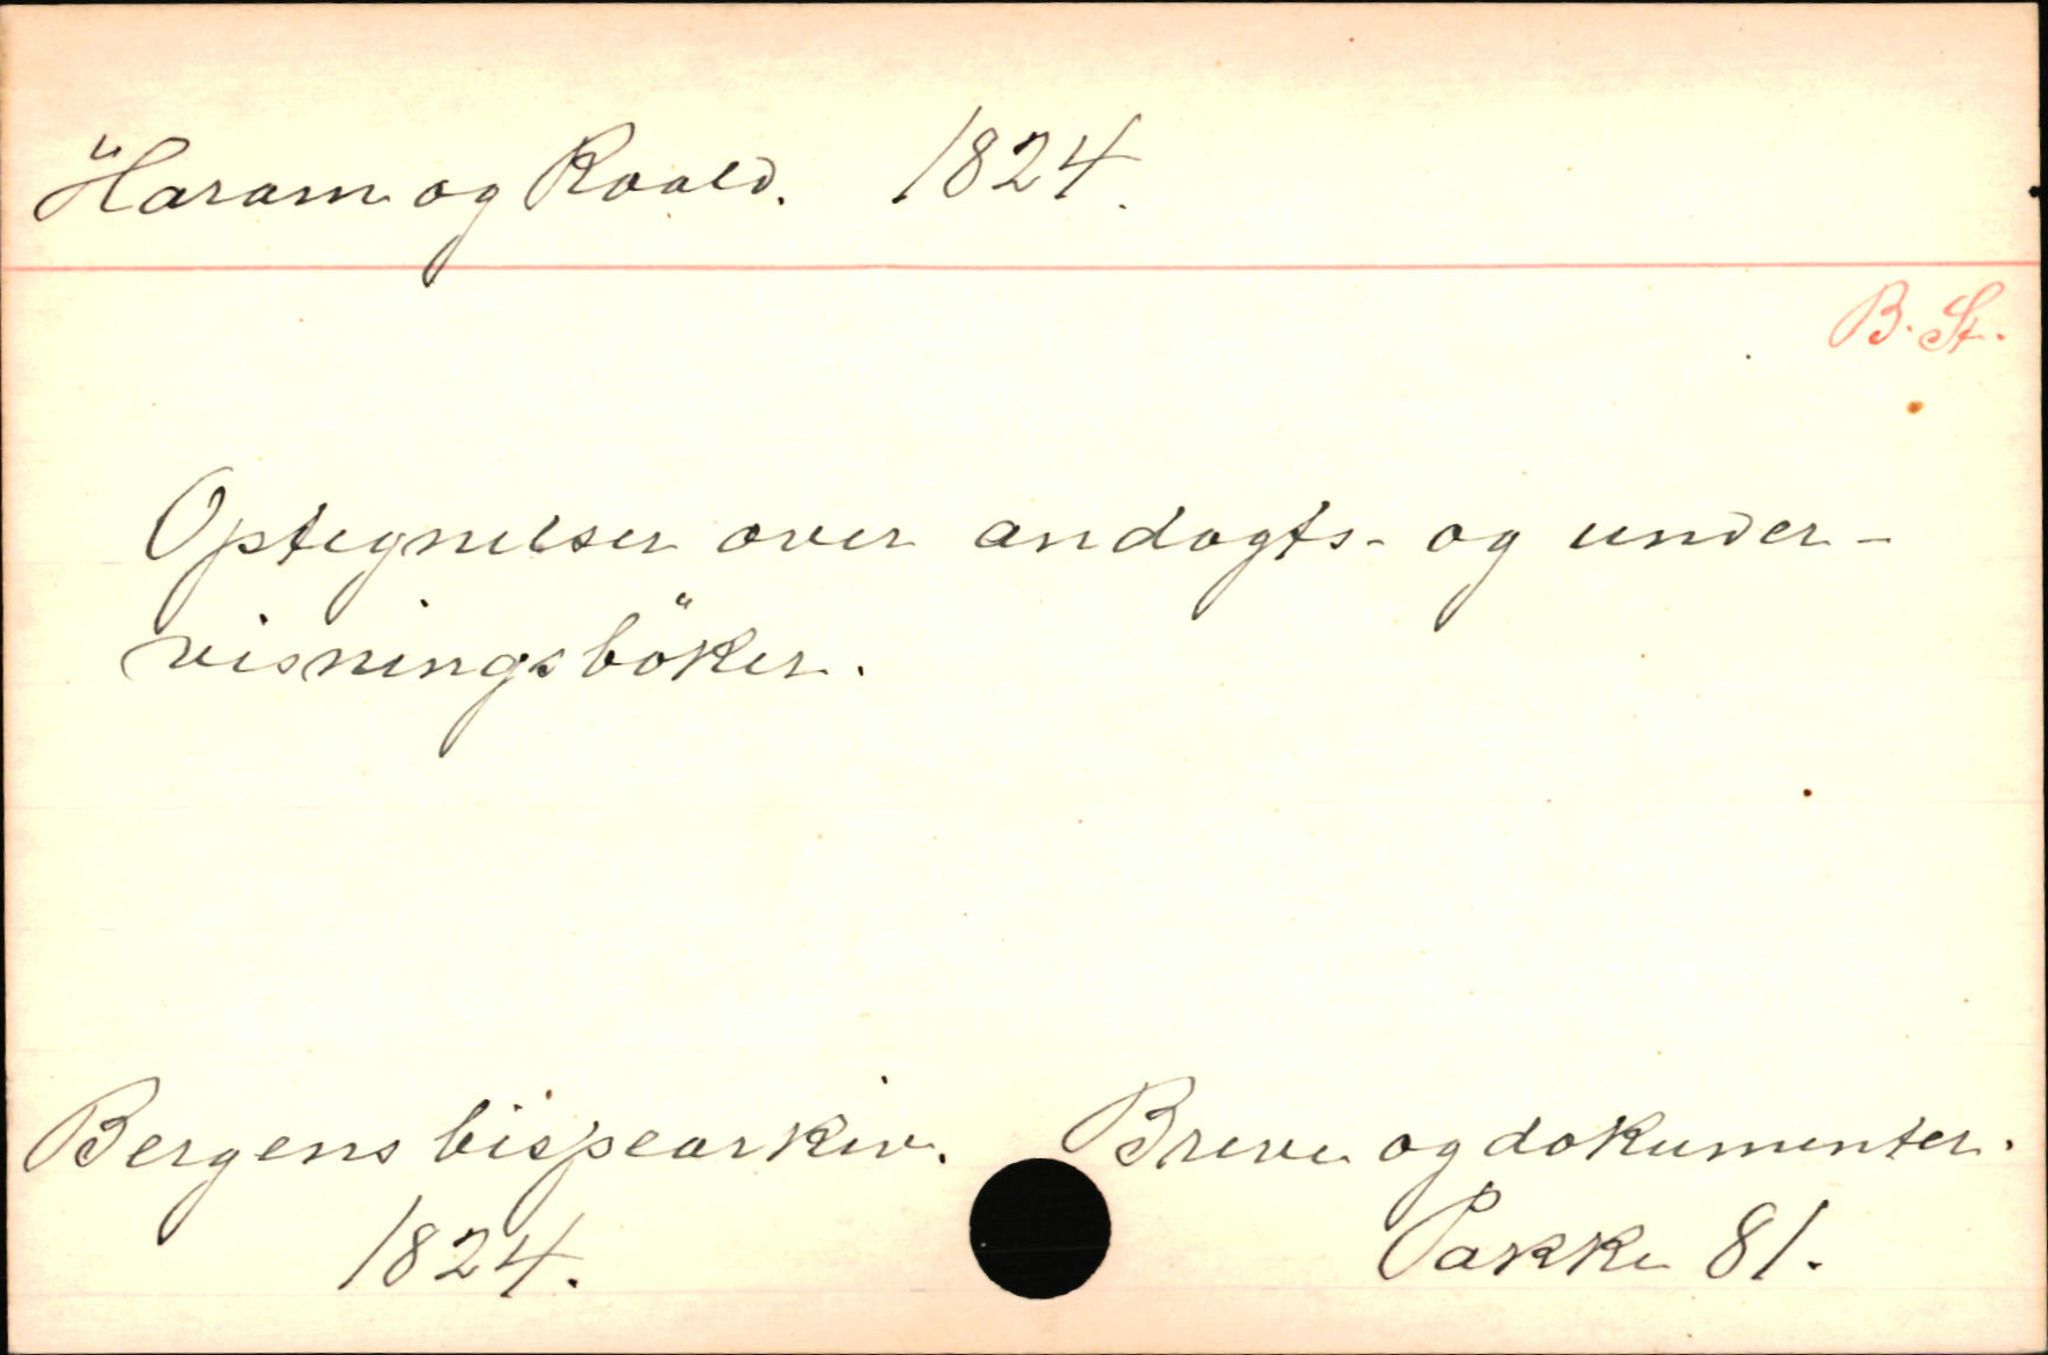 Haram og Roald. 1824.
B. St.
Optegnelser over andagts- og under-
visningsböker.
Bergens bispearkiv. Breve og dokumenter.
1824. Pakke 81.